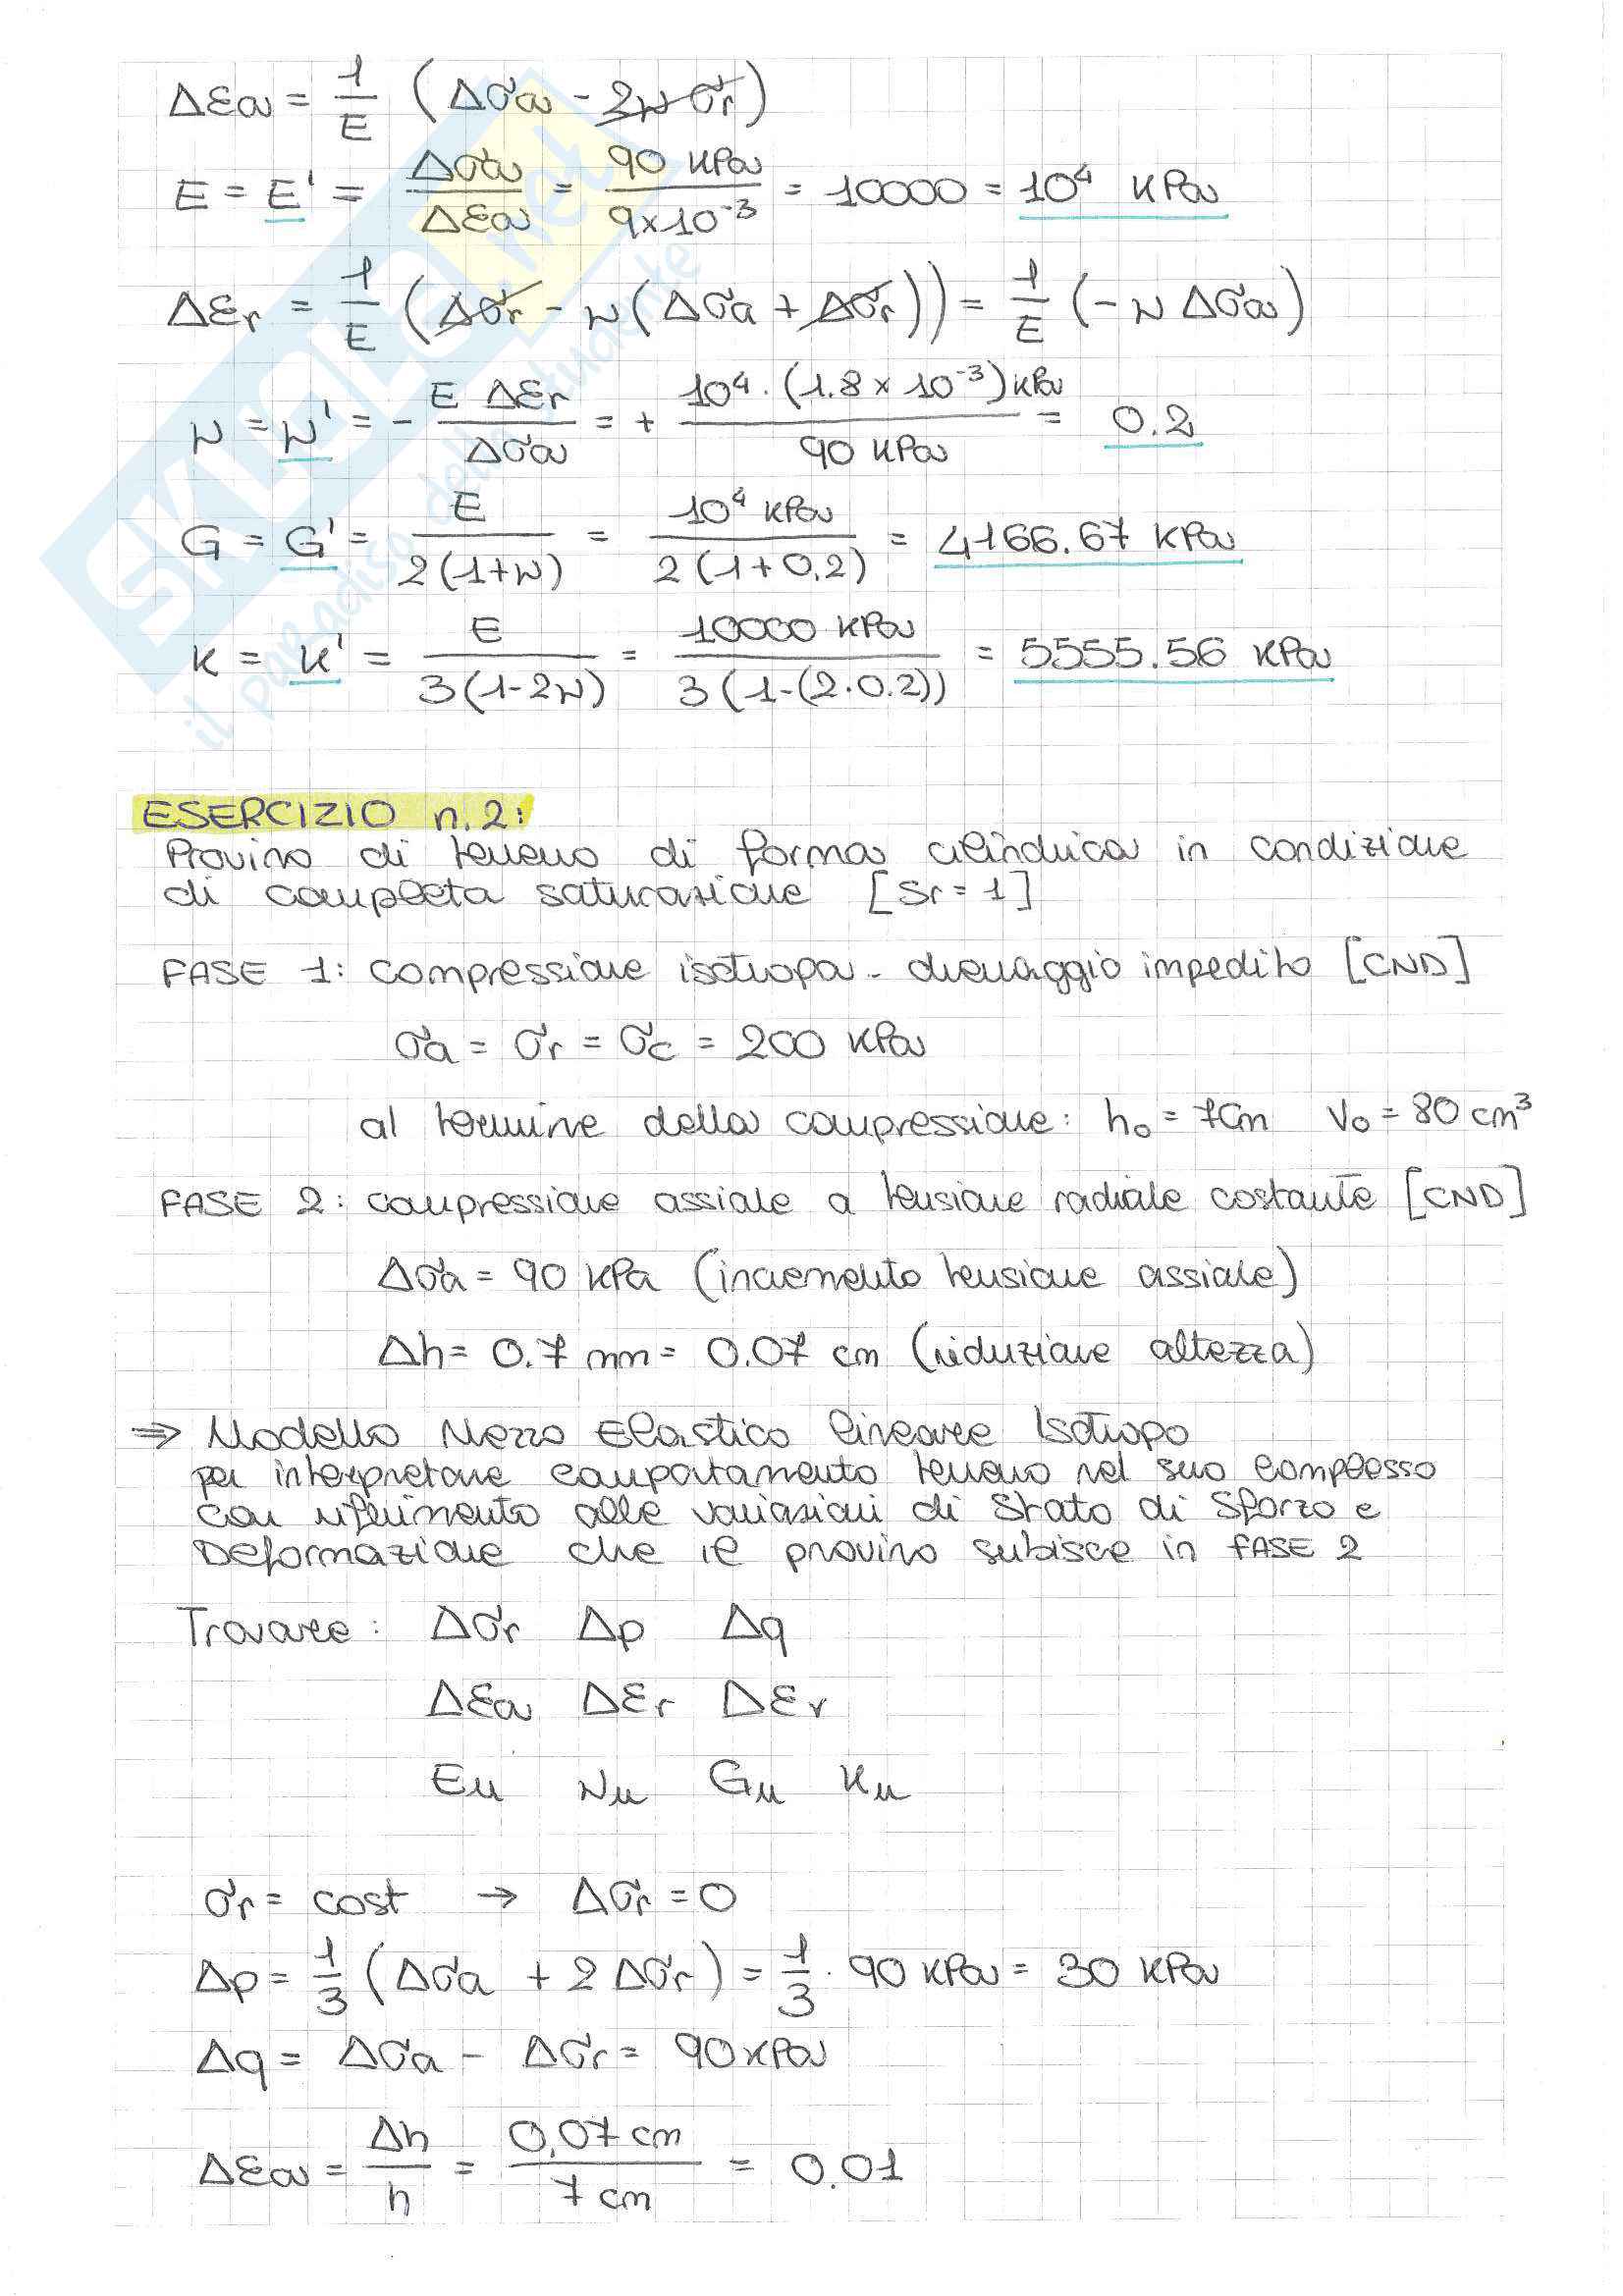 Δεa = 1/E (Δσa - 2ν σr)
E = E' = Δσa/Δεa = 90 KPa/9x10⁻³ = 10000 = 10⁴ KPa
Δεr = 1/E (Δσr - ν(Δσa + Δσr)) = 1/E (-ν Δσa)
ν = ν' = - E Δεr/Δσa = + 10⁴·(1.8 x 10⁻³) KPa/90 KPa = 0.2
G = G' = E/2(1+ν) = 10⁴ KPa/2(1+0,2) = 4166.67 KPa
K = K' = E/3(1-2ν) = 10000 KPa/3(1-(2·0.2)) = 5555.56 KPa
SKUOLA.net
il paradiso dello studente
ESERCIZIO n.2:
Provino di terreno di forma cilindrica in condizione
di completa saturazione [Sr = 1]
FASE 1: compressione isotropa - drenaggio impedito [CND]
σa = σr = σc = 200 KPa
al termine della compressione: h₀ = 7cm V₀ = 80 cm³
FASE 2: compressione assiale a tensione radiale costante [CND]
Δσa = 90 KPa (incremento tensione assiale)
Δh = 0.7 mm = 0.07 cm (riduzione altezza)
⇒ Modello Mezzo Elastico Lineare Isotropo
per interpretare comportamento terreno nel suo complesso
con riferimento alle variazioni di Stato di Sforzo e
Deformazione che il provino subisce in FASE 2
Trovare: Δσr Δp Δq
Δεa Δεr Δεv
Eu νu Gu Ku
σr = cost → Δσr = 0
Δp = 1/3 (Δσa + 2 Δσr) = 1/3 · 90 KPa = 30 KPa
Δq = Δσa - Δσr = 90 KPa
Δεa = Δh/h = 0,07 cm/7 cm = 0,01